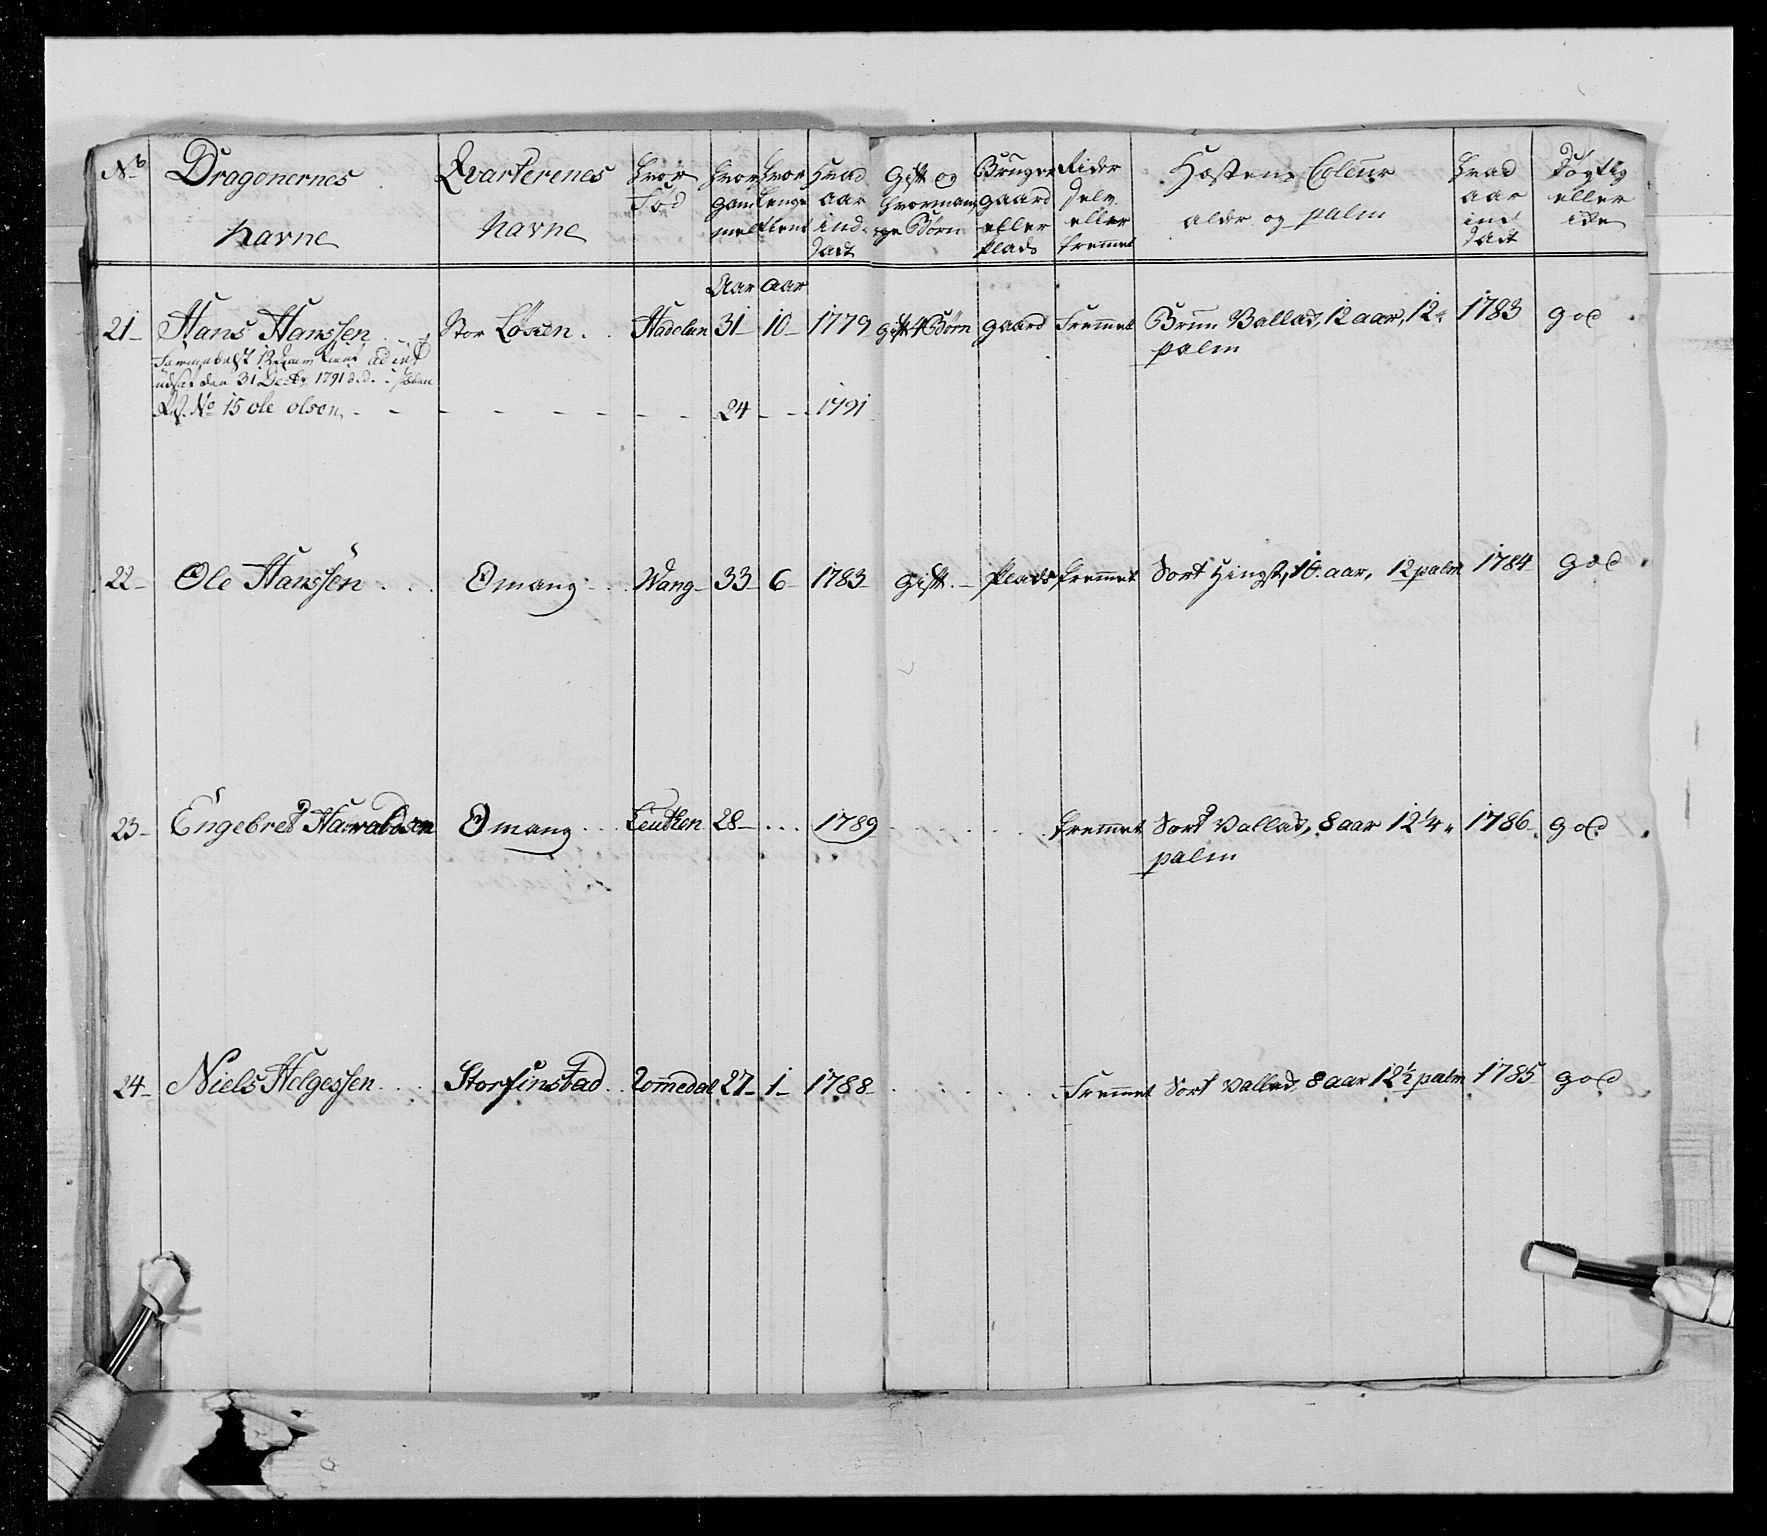 No Dragonernes Navne Qvarterenes Navne Hvor Fød Hvor gammel Hvor lenge tient Hvad aar indsadt Gift og hvormange Børn Bruger gaard eller Plads Rider selv eller fremmet Hæstens Coleur alder og palm Hvad aar indsadt Døgtig eller icke
Aar aar
21 Hans Hanssen Stor Løsen Hadelan 31 10 1779 gift 4 Børn gaard Fremmet Brun Vallad, 12 aar, 12 1783 god
palm
udsat den 31 1791
No 15 ole olsen 24 1791
22 Ole Hanssen Omang Wang 33 6 1783 gift Plads fremmet Sort Hingst, 10 aar, 12 palm 1784 god
23 Engebret Haavaldsen Omang Leuthen 28 1789 fremmet Sort Vallad, 8 aar 12 1/4 1786 god
palm
24 Niels Helgessen Storfinstad Rommedal 27 1 1788 Fremmet Sort Vallad, 8 aar 12 1/2 palm 1785 god